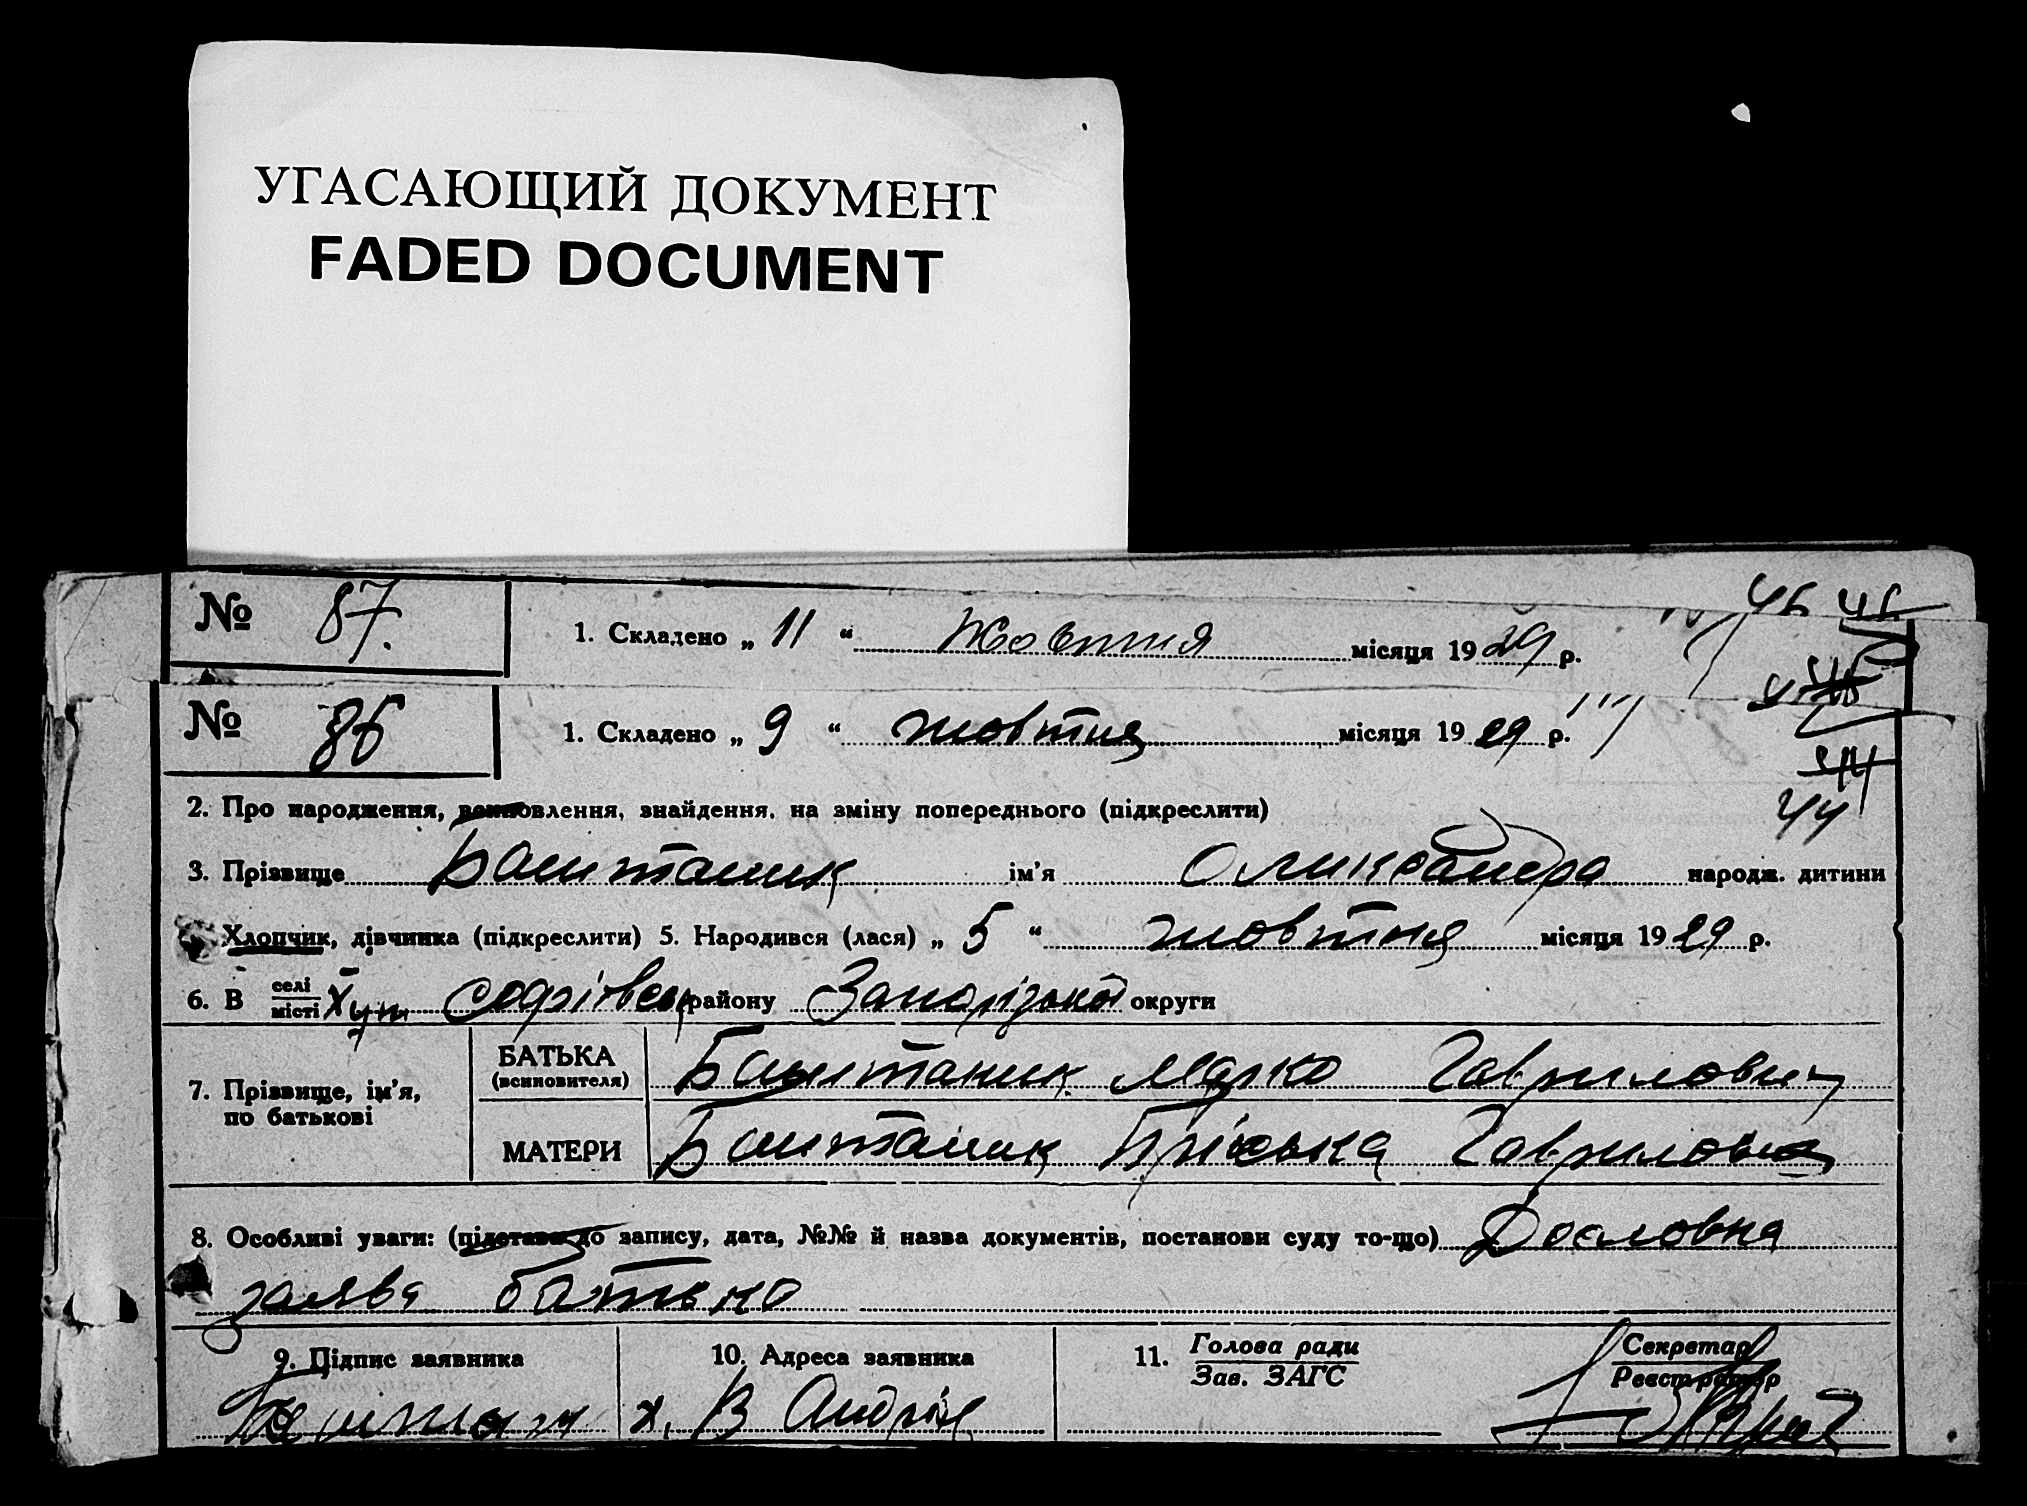 УГАСАЮЩИЙ ДОКУМЕНТ
FADED DOCUMENT
№ 87. 1. Складено „ 11 “ Жовтня місяця 1929 р.
46 46
№ 86 1. Складено „ 9 “ жовтня місяця 1929 р.
44
2. Про народження, всиновлення, знайдення, на зміну попереднього (підкреслити)
3. Прізвище Баштаник ім'я Олександра народж. дитини
Хлопчик, дівчинка (підкреслити) 5. Народився (лася) „ 5 “ жовтня місяця 1929 р.
6. В селі місті Хут Софіївськ району Запоріської округи
7. Прізвище, ім'я, по батькові
БАТЬКА (всиновителя) Баштаник Марко Гаврилович
МАТЕРИ Баштаник Пріська Гавриловна
8. Особливі уваги: (підстава до запису, дата, №№ й назва документів, постанови суду то-що) Дословна
заява батька
9. Підпис заявника 10. Адреса заявника 11. Голова ради Зав. ЗАГС Секретар Реєстратор
х. В Андрія